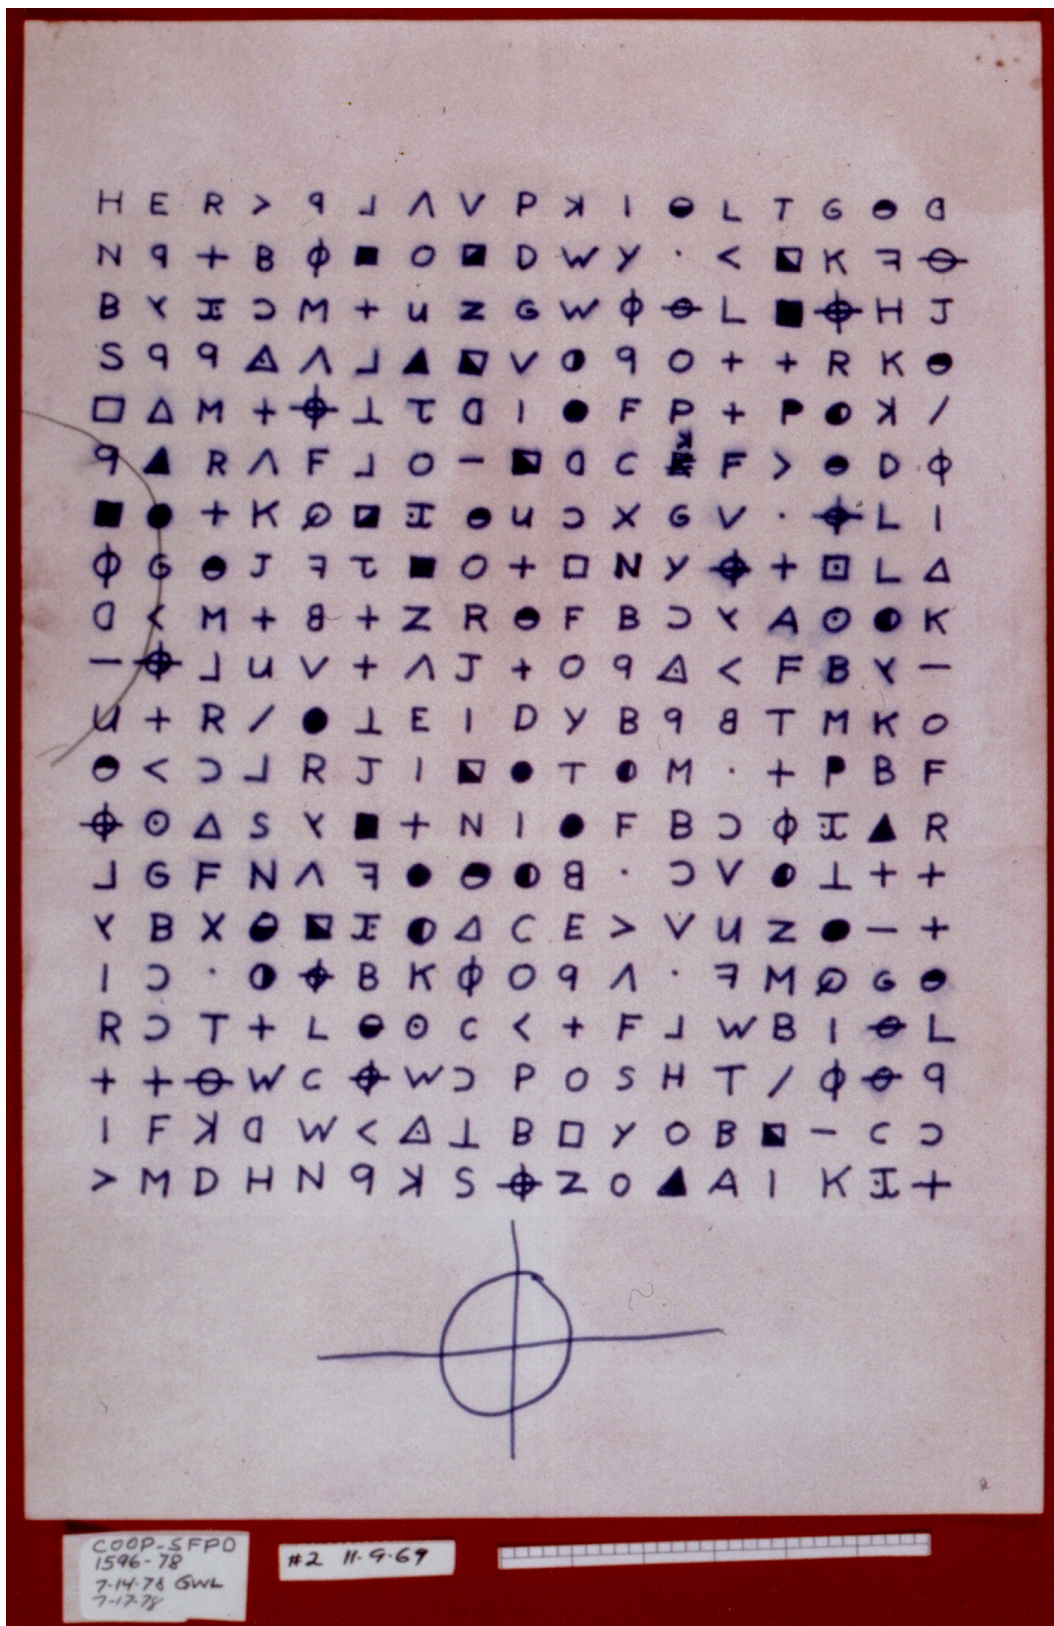 H E R > ꟼ ⅃ Λ V P ꓘ I ◒ L T G ◒ ᗡ
N ꟼ + B ϕ ■ O ◪ D W Y · < ◣ K ꟻ ⊖
B ⅄ Ɪ Ɔ M + u Z G W ϕ ⊖ L ■ ⌖ H J
S ꟼ ꟼ ◬ Λ ⅃ ▲ ◪ V ◑ ꟼ O + + R K ◒
□ △ M + ⌖ ⊥ τ ᗡ I ● F P + P ◑ ꓘ /
ꟼ ▲ R Λ F ⅃ O – ◪ ᗡ C ꓘ F > ◒ D ϕ
■ ● + K ∅ ◪ Ɪ ◒ u Ɔ X G V · ⌖ L I
ϕ G ◒ J ꟻ τ ■ O + □ N Y ⌖ + ⊡ L △
ᗡ < M + 8 + Z R ◒ F B Ɔ ⅄ A ⊙ ◑ K
– ⌖ ⅃ u V + Λ J + O ꟼ ◬ < F B ⅄ –
u + R / ● ⊥ E I D Y B ꟼ 8 T M K O
◒ < Ɔ ⅃ R J I ◪ ● T ◑ M · + P B F
⌖ ⊙ △ S ⅄ ■ + N I ● F B Ɔ ϕ Ɪ ▲ R
⅃ G F N Λ ꟻ ● ◒ ◑ 8 · Ɔ V ◑ ⊥ + +
⅄ B X ◒ ◪ Ɪ ◑ △ C E > V u Z ● – +
I Ɔ · ◑ ⌖ B K ϕ O ꟼ Λ · ꟻ M ∅ G ◒
R Ɔ T + L ◒ ⊙ C < + F ⅃ W B I ⊖ L
+ + ⊖ W C ⌖ W Ɔ P O S H T / ϕ ⊖ ꟼ
I F ꓘ ᗡ W < ◬ ⊥ B □ Y O B ◪ – C Ɔ
> M D H N ꟼ ꓘ S ⌖ Z O ▲ A I K Ɪ +
COOP-SFPD
1596-78
7-14-78 GWL
7-17-78
#2 11-9-69